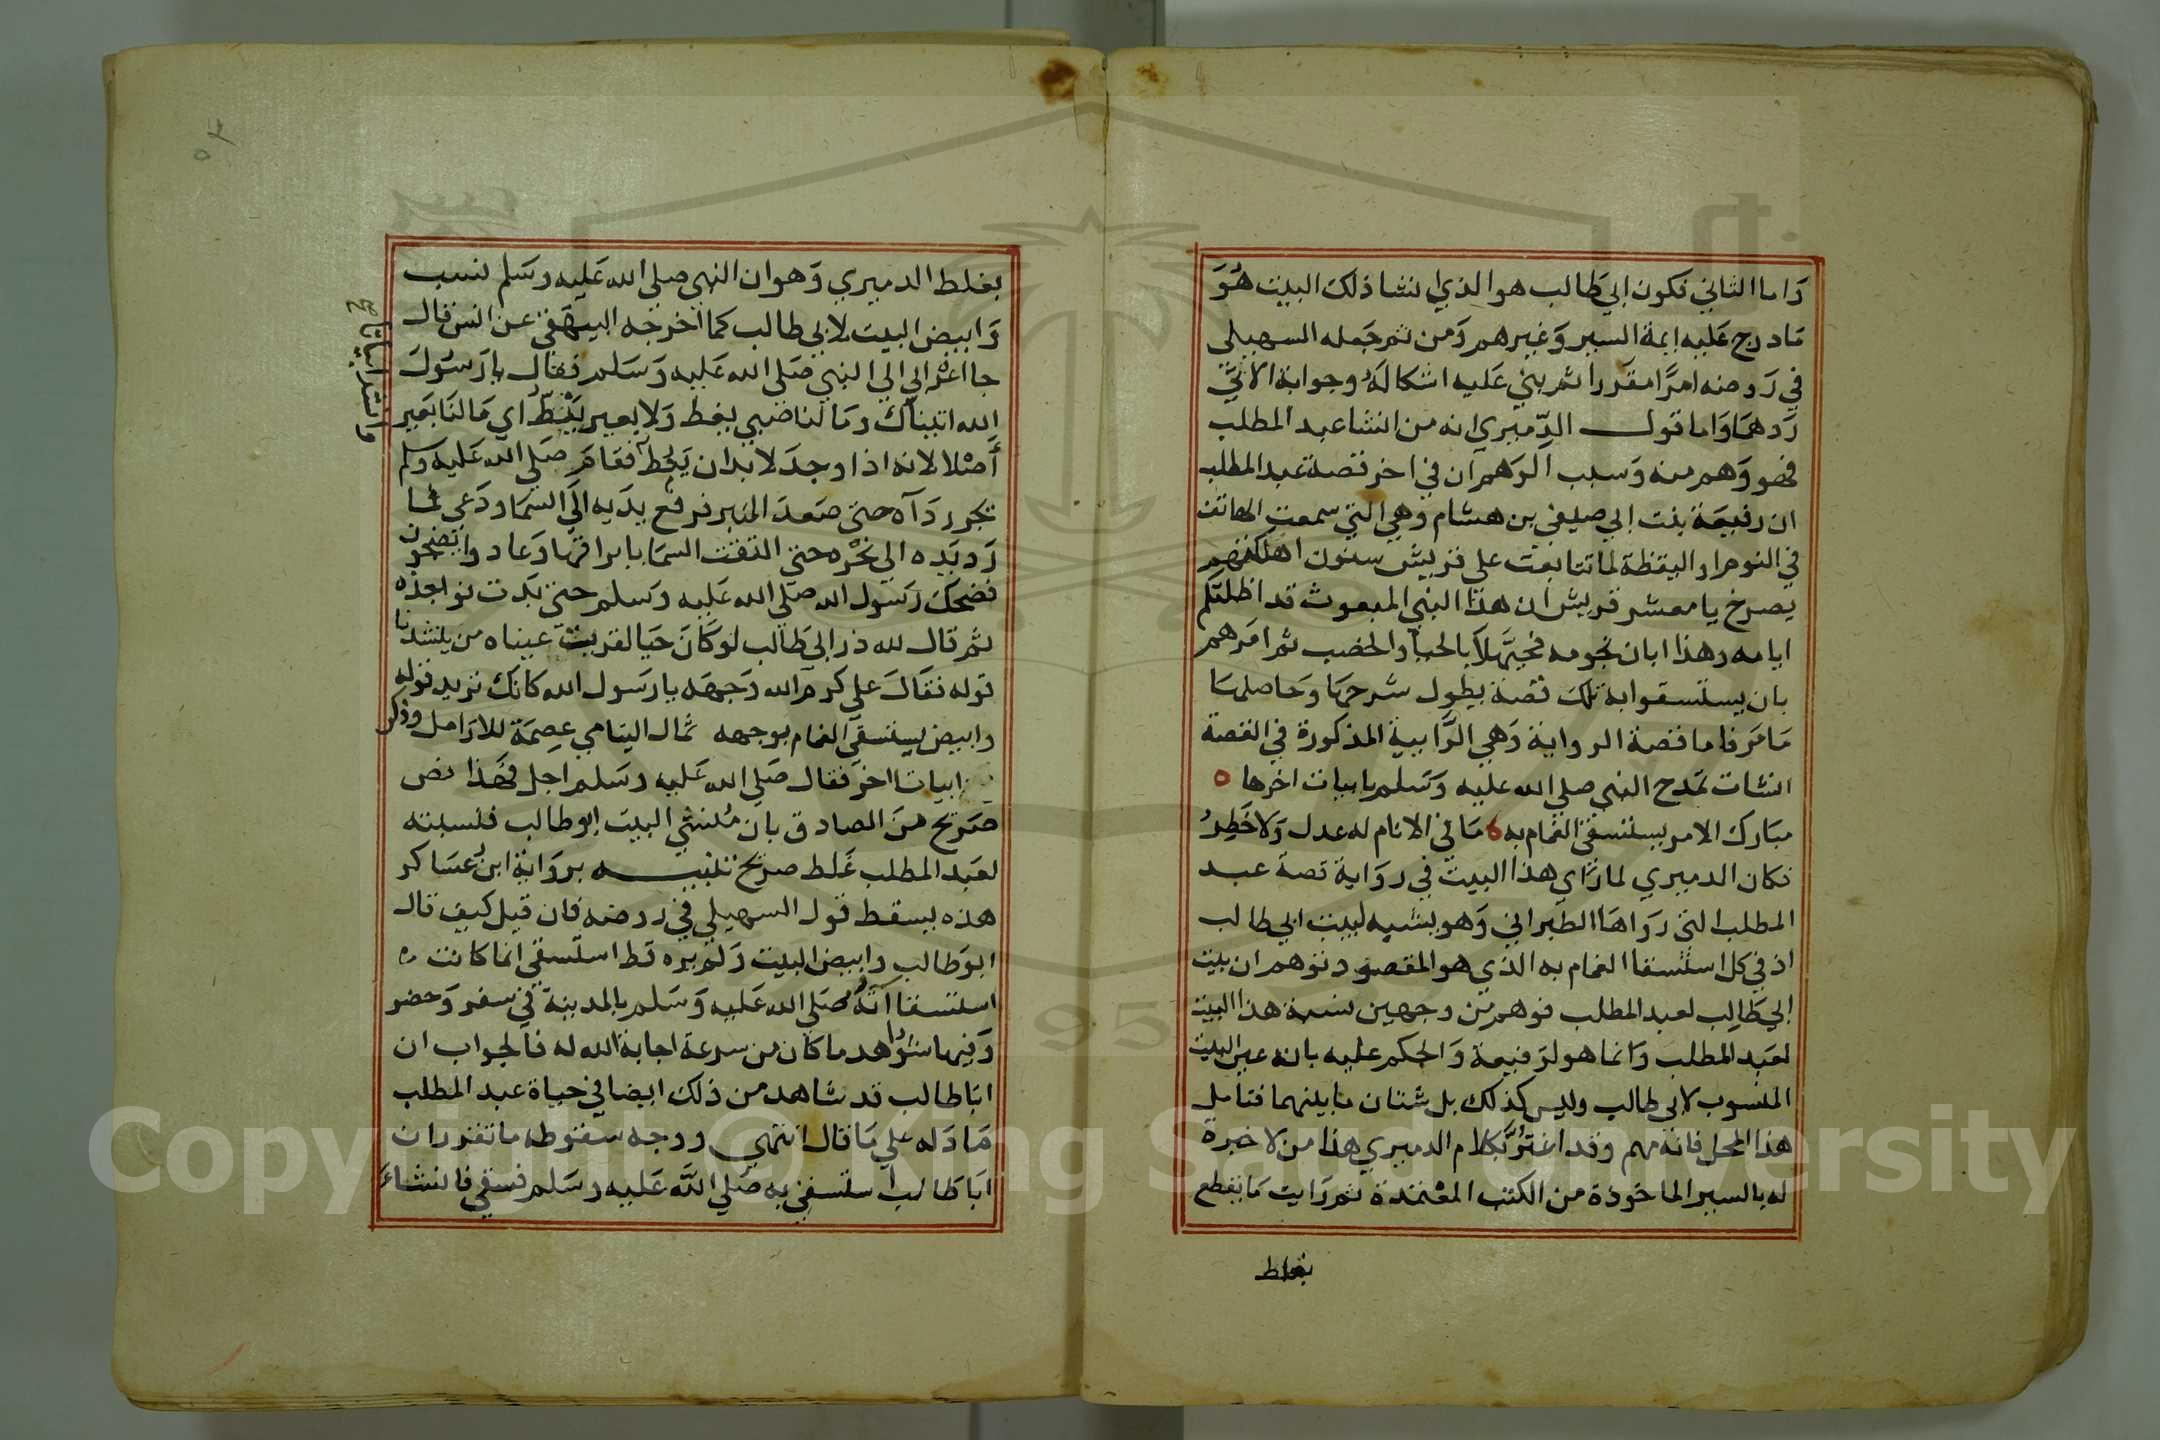 وَاما الثاني فكون ابي طالب هو الذي انشا ذلك البيت هُوَ
مَا درج عَليه ايمة السير وَغيرهم وَمن ثم جَعله السهيلي
في رَوضه امرًا مقررا ثم بني عَليه اشكالَهُ وجوابهُ الآتي
رَدهمَا وَاما قول الدِّميري انه من انشا عبد المطلب
فهو وَهم منه وَسبب الوَهم ان في اخر قصة عبد المطلب
ان رفيعَة بنت ابي صيفي بن هشام وَهي التي سمعت الهاتف
في النوم او اليقظة لما تتابعت علي قريش سنون اهلكتهم
يصرخ يا معشر قريش ان هذا النبي المبعوث قد اظلتكم
ايامه وهذا ابان نجومه فحيَّهلاَ بالحيا والخصب ثم امَرهم
بان يستسقوا به تلك قصة يطول شرحهَا وَحاصلهَا
مَا مَر فاما قصة الرواية وَهي الرَّابية المذكورة في القصة
انشات تمدح النبي صلي الله عليه وَسَلم بابيات اخرها ه
مبَارك الامر يستسقي الغمام به مَا في الانام له عدل وَلا خَطِرُ
فكان الدميري لما رَاي هذا البيت في روَاية قصة عبد
المطلب التي رَوَاهَا الطبراني وَهو يشبه لبيت ابي طالب
اذ في كل استسقا الغمام به الذي هو المقصود توهم ان بيت
ابي طَالِب لعبد المطلب فوهم من وجهين نسبة هذا البيت
لعبد المطلب وَانما هو لرَفيعة وَالحكم عليه بانه عين البيت
المنسوب لابي طالب وليس كذلك بل شتان ما بينهما فتامل
هذا المحل فانهُ مهم وقد اغترَّ بكلام الدميري هذا من لا خبرة
له بالسير الماخوذة من الكتب المعتمدة ثم رَايت مَا يقطع
بغلط
بغلط الدميري وَهو ان النبي صلي الله عَليه وسَلم نسب
وَابيض البيت لابي طالب كما اخرجَه البيهَقي عن انس قال
جا اعرَابي الي النبي صَلي الله عَليه وَسَلم فقال يا رَسُولَ
الله اتيناك ومَا لنا صبي يغط وَلا بعير يَئِطّ اي مَا لنَا بَعير
أصْلا لانه اذا وجدَ لا بد ان يَئِطّ فقامَ صَلي الله عَليه وَسَلم
يجر ردَآه حتي صَعدَ المنبر فرفع يدَيه الَي السمَا ودَعي فما
رَد يَدِه الي نحْره حتي التقت السمَا بابراقهَا وَعاد وا يضجون
فضحك رَسول الله صَلي الله عَليه وسَلم حتي بَدَت نواجذه
ثم قال لله در ابي طَالب لو كَانَ حَيا لقرت عيناه من ينشدنا
قوله فقالَ علي كرم الله وَجهَه يا رسَول الله كانك تريد قوله
وابيض يستسقي الغمام بوجهه ثمال اليتامي عِصمَة للارَامل وذكر
ابيات اخر فقال صَلي الله عَليه وسَلم اجل فهَذا نص
صَريح منَ الصادق بان مُنشي البيت ابو طالب فنسبته
لعَبد المطلب غَلط صريح تنبيه بروَاية ابن عسَاكر
هذه يسقط قول السهيلي في روضه فان قيل كيف قال
ابوَ طالب وابيض البيت وَلم يره قط استسقي انما كانت ه
استسقا اَتهُ صَلي الله عَليه وَسَلم بالمدينة في سفر وَحضر
وَفيها شوَاهد ما كان من سرعة اجابة الله له فالجواب ان
ابا طالب قد شاهد من ذلك ايضا في حياة عبد المطلب
مَا دَله علي مَا قال انتهي ووجه سقوطه ما تقرر ان
ابَا طَالب استسقي به صَلي الله عَليه وسَلم فسقي فا نشاءَ